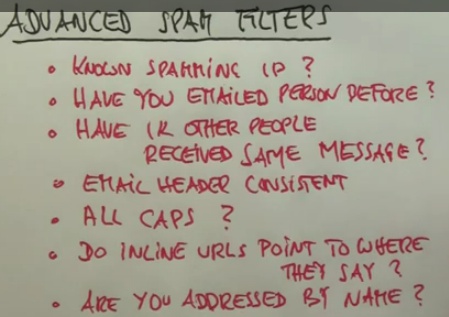 ADVANCED SPAM FILTERS
• KNOWN SPAMMING IP ?
• HAVE YOU EMAILED PERSON BEFORE ?
• HAVE 1K OTHER PEOPLE
RECEIVED SAME MESSAGE ?
• EMAIL HEADER CONSISTENT
• ALL CAPS ?
• DO INLINE URLS POINT TO WHERE
THEY SAY ?
• ARE YOU ADDRESSED BY NAME ?